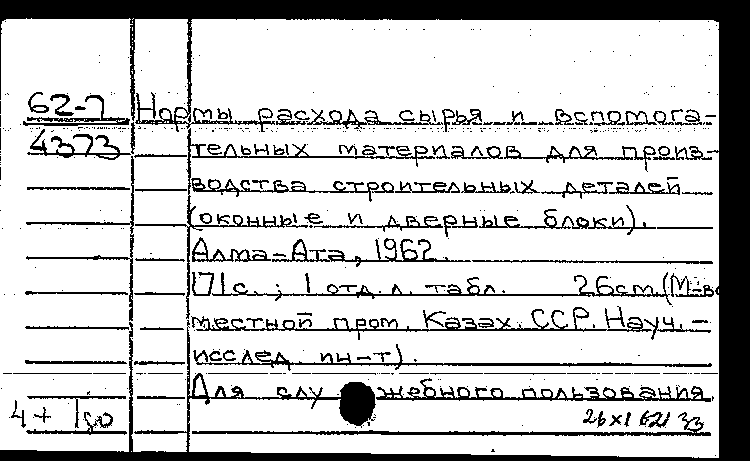 62-7 Нормы расхода сырья и вспомога-
4373 тельных материалов для произ-
водства строительных деталей
(оконные и дверные блоки).
Алма-Ата, 1962.
171с.; 1 отд. л. табл. 26см. (М-во
местной пром. Казах. ССР. Науч.-
исслед. ин-т).
Для служебного пользования.
4+